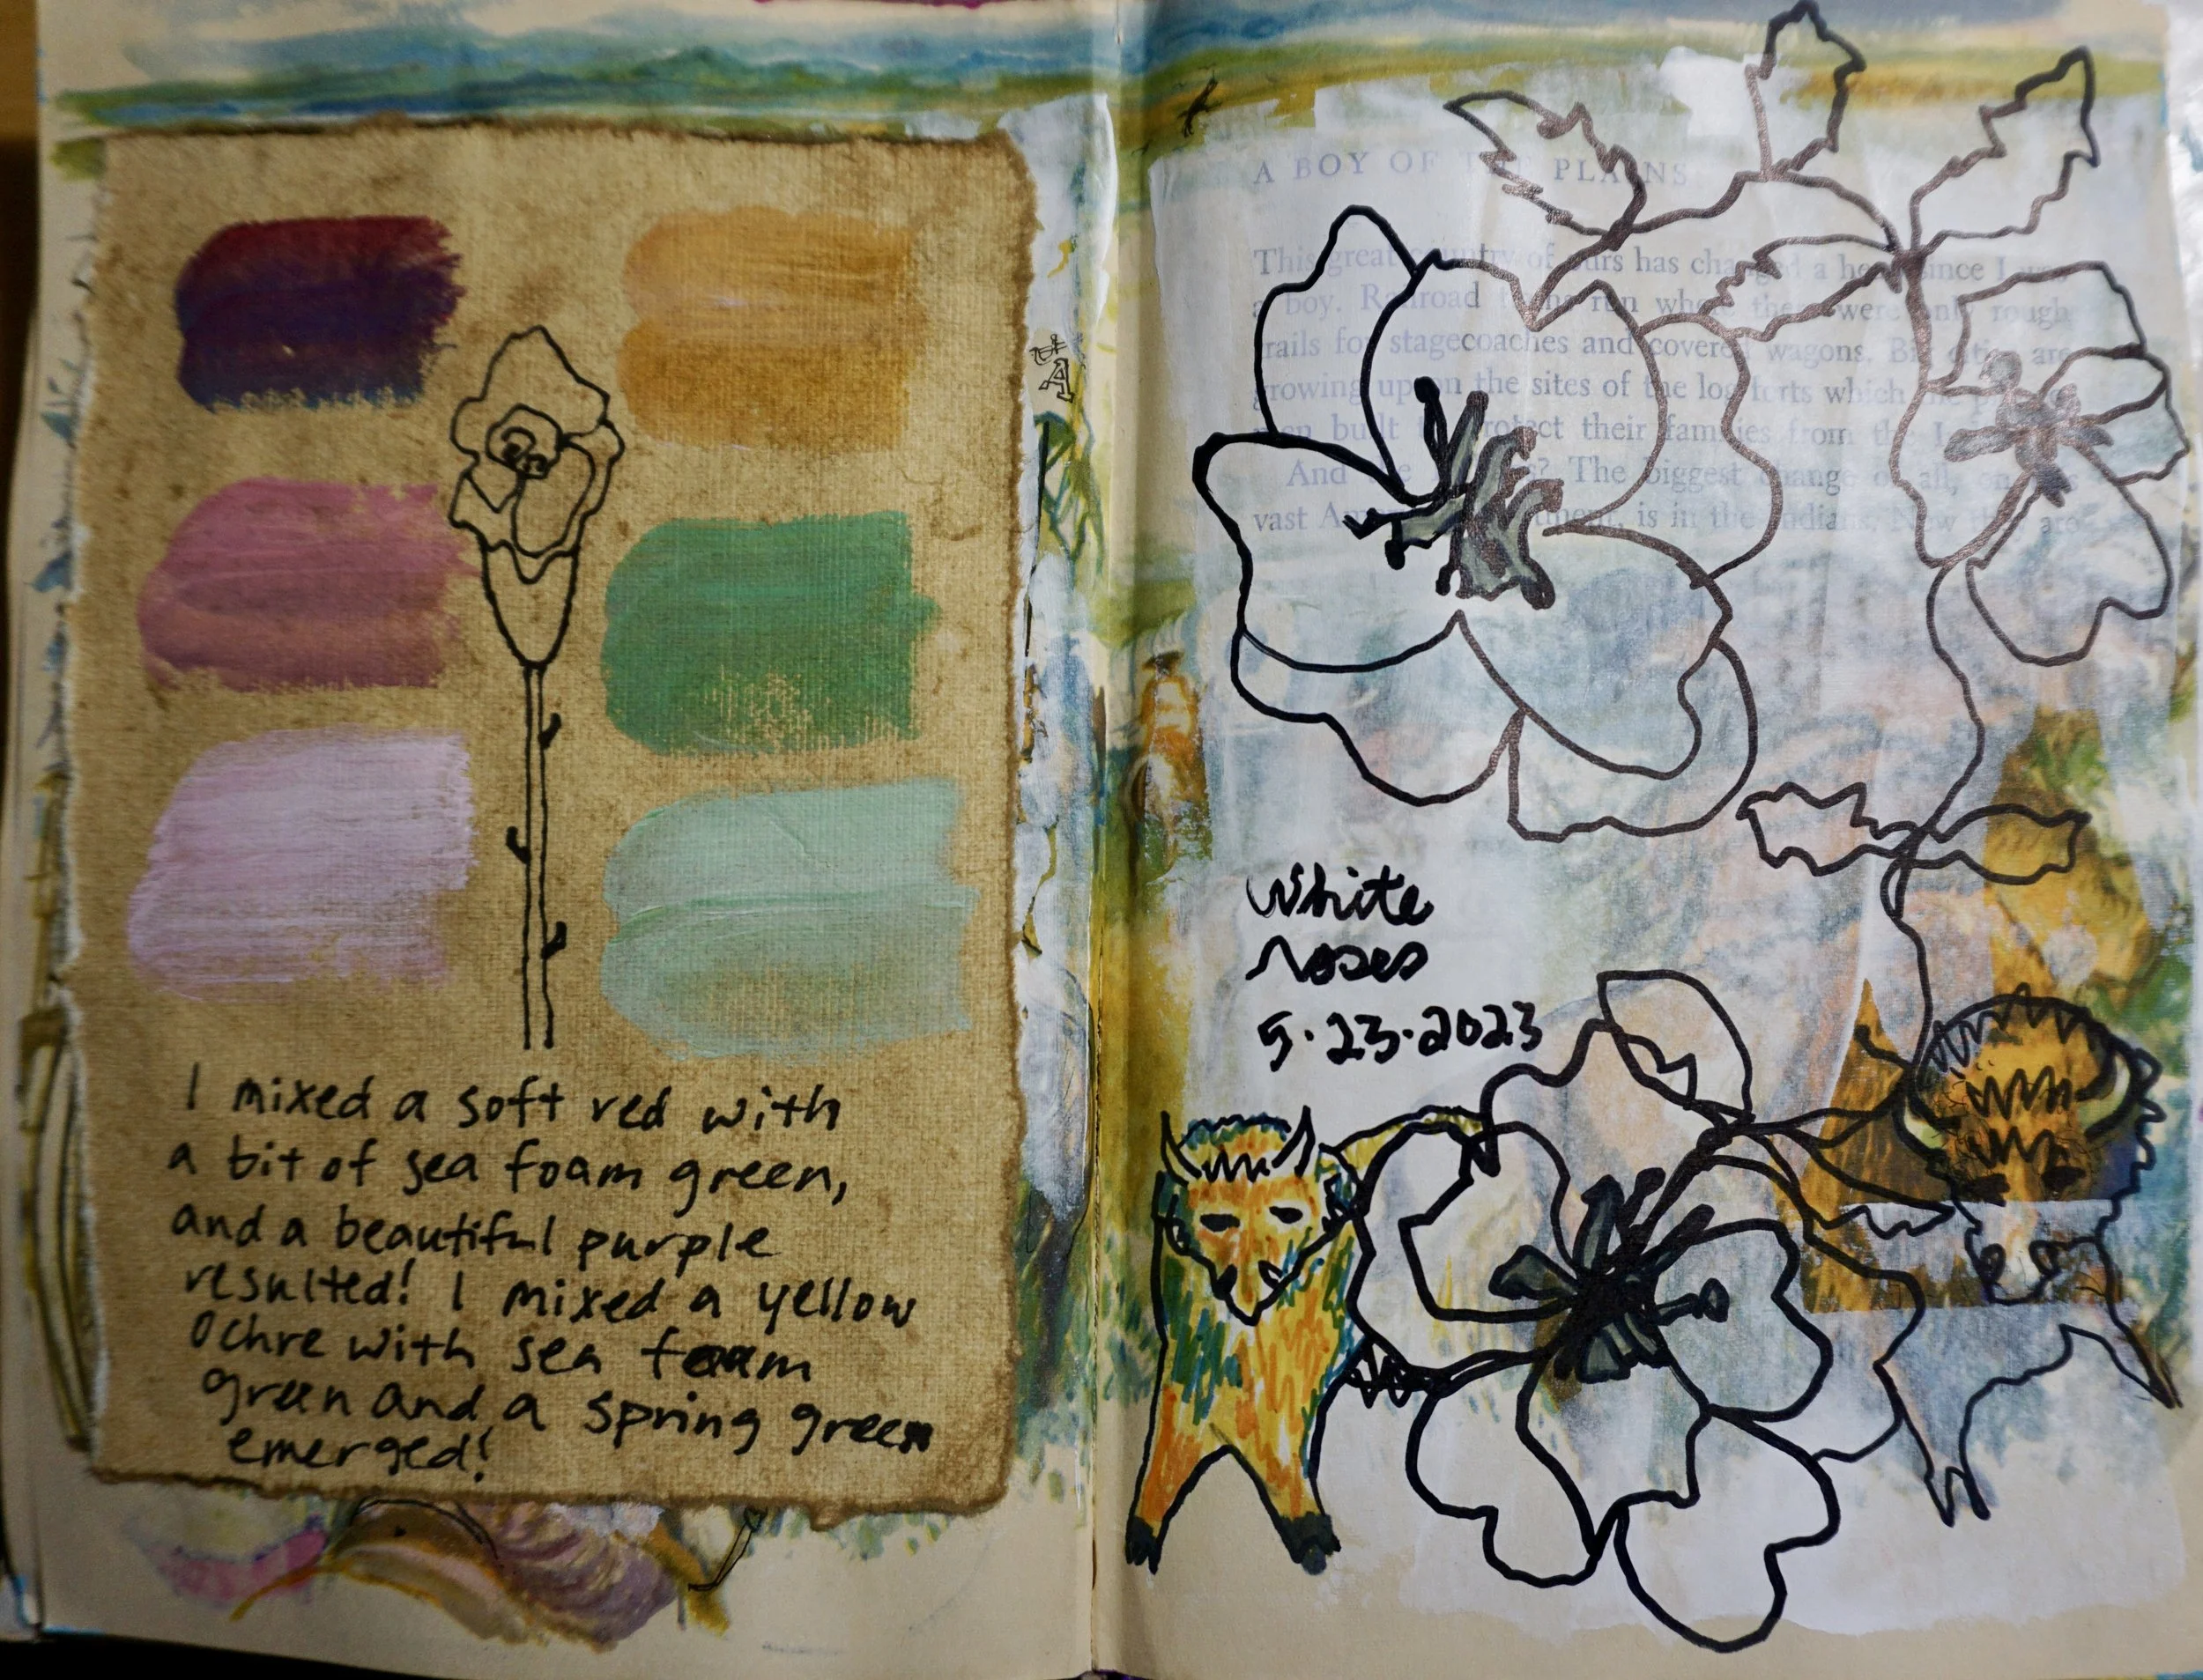 I mixed a soft red with
a bit of sea foam green,
and a beautiful purple
resulted! I mixed a yellow
Ochre with sea foam
green and a spring green
emerged!
A BOY OF THE PLAINS
This great country of ours has changed a heap since I was
a boy. Railroad trains run where there were only rough
trails for stagecoaches and covered wagons. Big cities are
growing up on the sites of the log forts which the
men built to protect their families from the
And the ? The biggest change of all, on
vast is in the Indians. Now they are
White
roses
5.23.2023